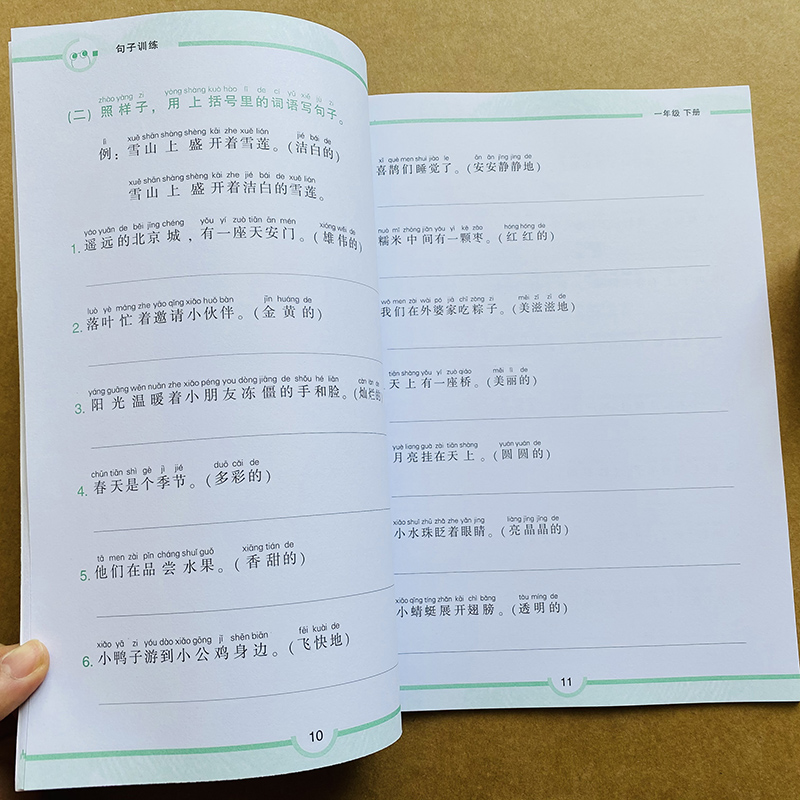 句子训练
zhào yàng zi yòng shàng kuò hào lǐ de cí yǔ xiě jù zi
(二) 照样子，用上括号里的词语写句子。
lì xuě shān shàng shèng kāi zhe xuě lián jié bái de
例：雪山上盛开着雪莲。(洁白的)
xuě shān shàng shèng kāi zhe jié bái de xuě lián
雪山上盛开着洁白的雪莲。
yáo yuǎn de běi jīng chéng yǒu yí zuò tiān ān mén xióng wěi de
1. 遥远的北京城，有一座天安门。(雄伟的)
luò yè máng zhe yāo qǐng xiǎo huǒ bàn jīn huáng de
2. 落叶忙着邀请小伙伴。(金黄的)
yáng guāng wēn nuǎn zhe xiǎo péng you dòng jiāng de shǒu hé liǎn càn làn de
3. 阳光温暖着小朋友冻僵的手和脸。(灿烂的
chūn tiān shì gè jì jié duō cǎi de
4. 春天是个季节。(多彩的)
tā men zài pǐn cháng shuǐ guǒ xiāng tián de
5. 他们在品尝水果。(香甜的)
xiǎo yā zi yóu dào xiǎo gōng jī shēn biān fēi kuài de
6. 小鸭子游到小公鸡身边。(飞快地)
10
一年级 下册
xǐ què men shuì jiào le ān ān jìng jìng de
喜鹊们睡觉了。(安安静静地)
nuò mǐ zhōng jiān yǒu yì kē zǎo hóng hóng de
糯米中间有一颗枣。(红红的)
wǒ men zài wài pó jiā chī zòng zi měi zī zī de
我们在外婆家吃粽子。(美滋滋地)
tiān shàng yǒu yí zuò qiáo měi lì de
天上有一座桥。(美丽的)
yuè liang guà zài tiān shàng yuán yuán de
月亮挂在天上。(圆圆的)
xiǎo shuǐ zhū zhǎ zhe yǎn jing liàng jīng jīng de
小水珠眨着眼睛。(亮晶晶的)
xiǎo qīng tíng zhǎn kāi chì bǎng tòu míng de
小蜻蜓展开翅膀。(透明的)
11